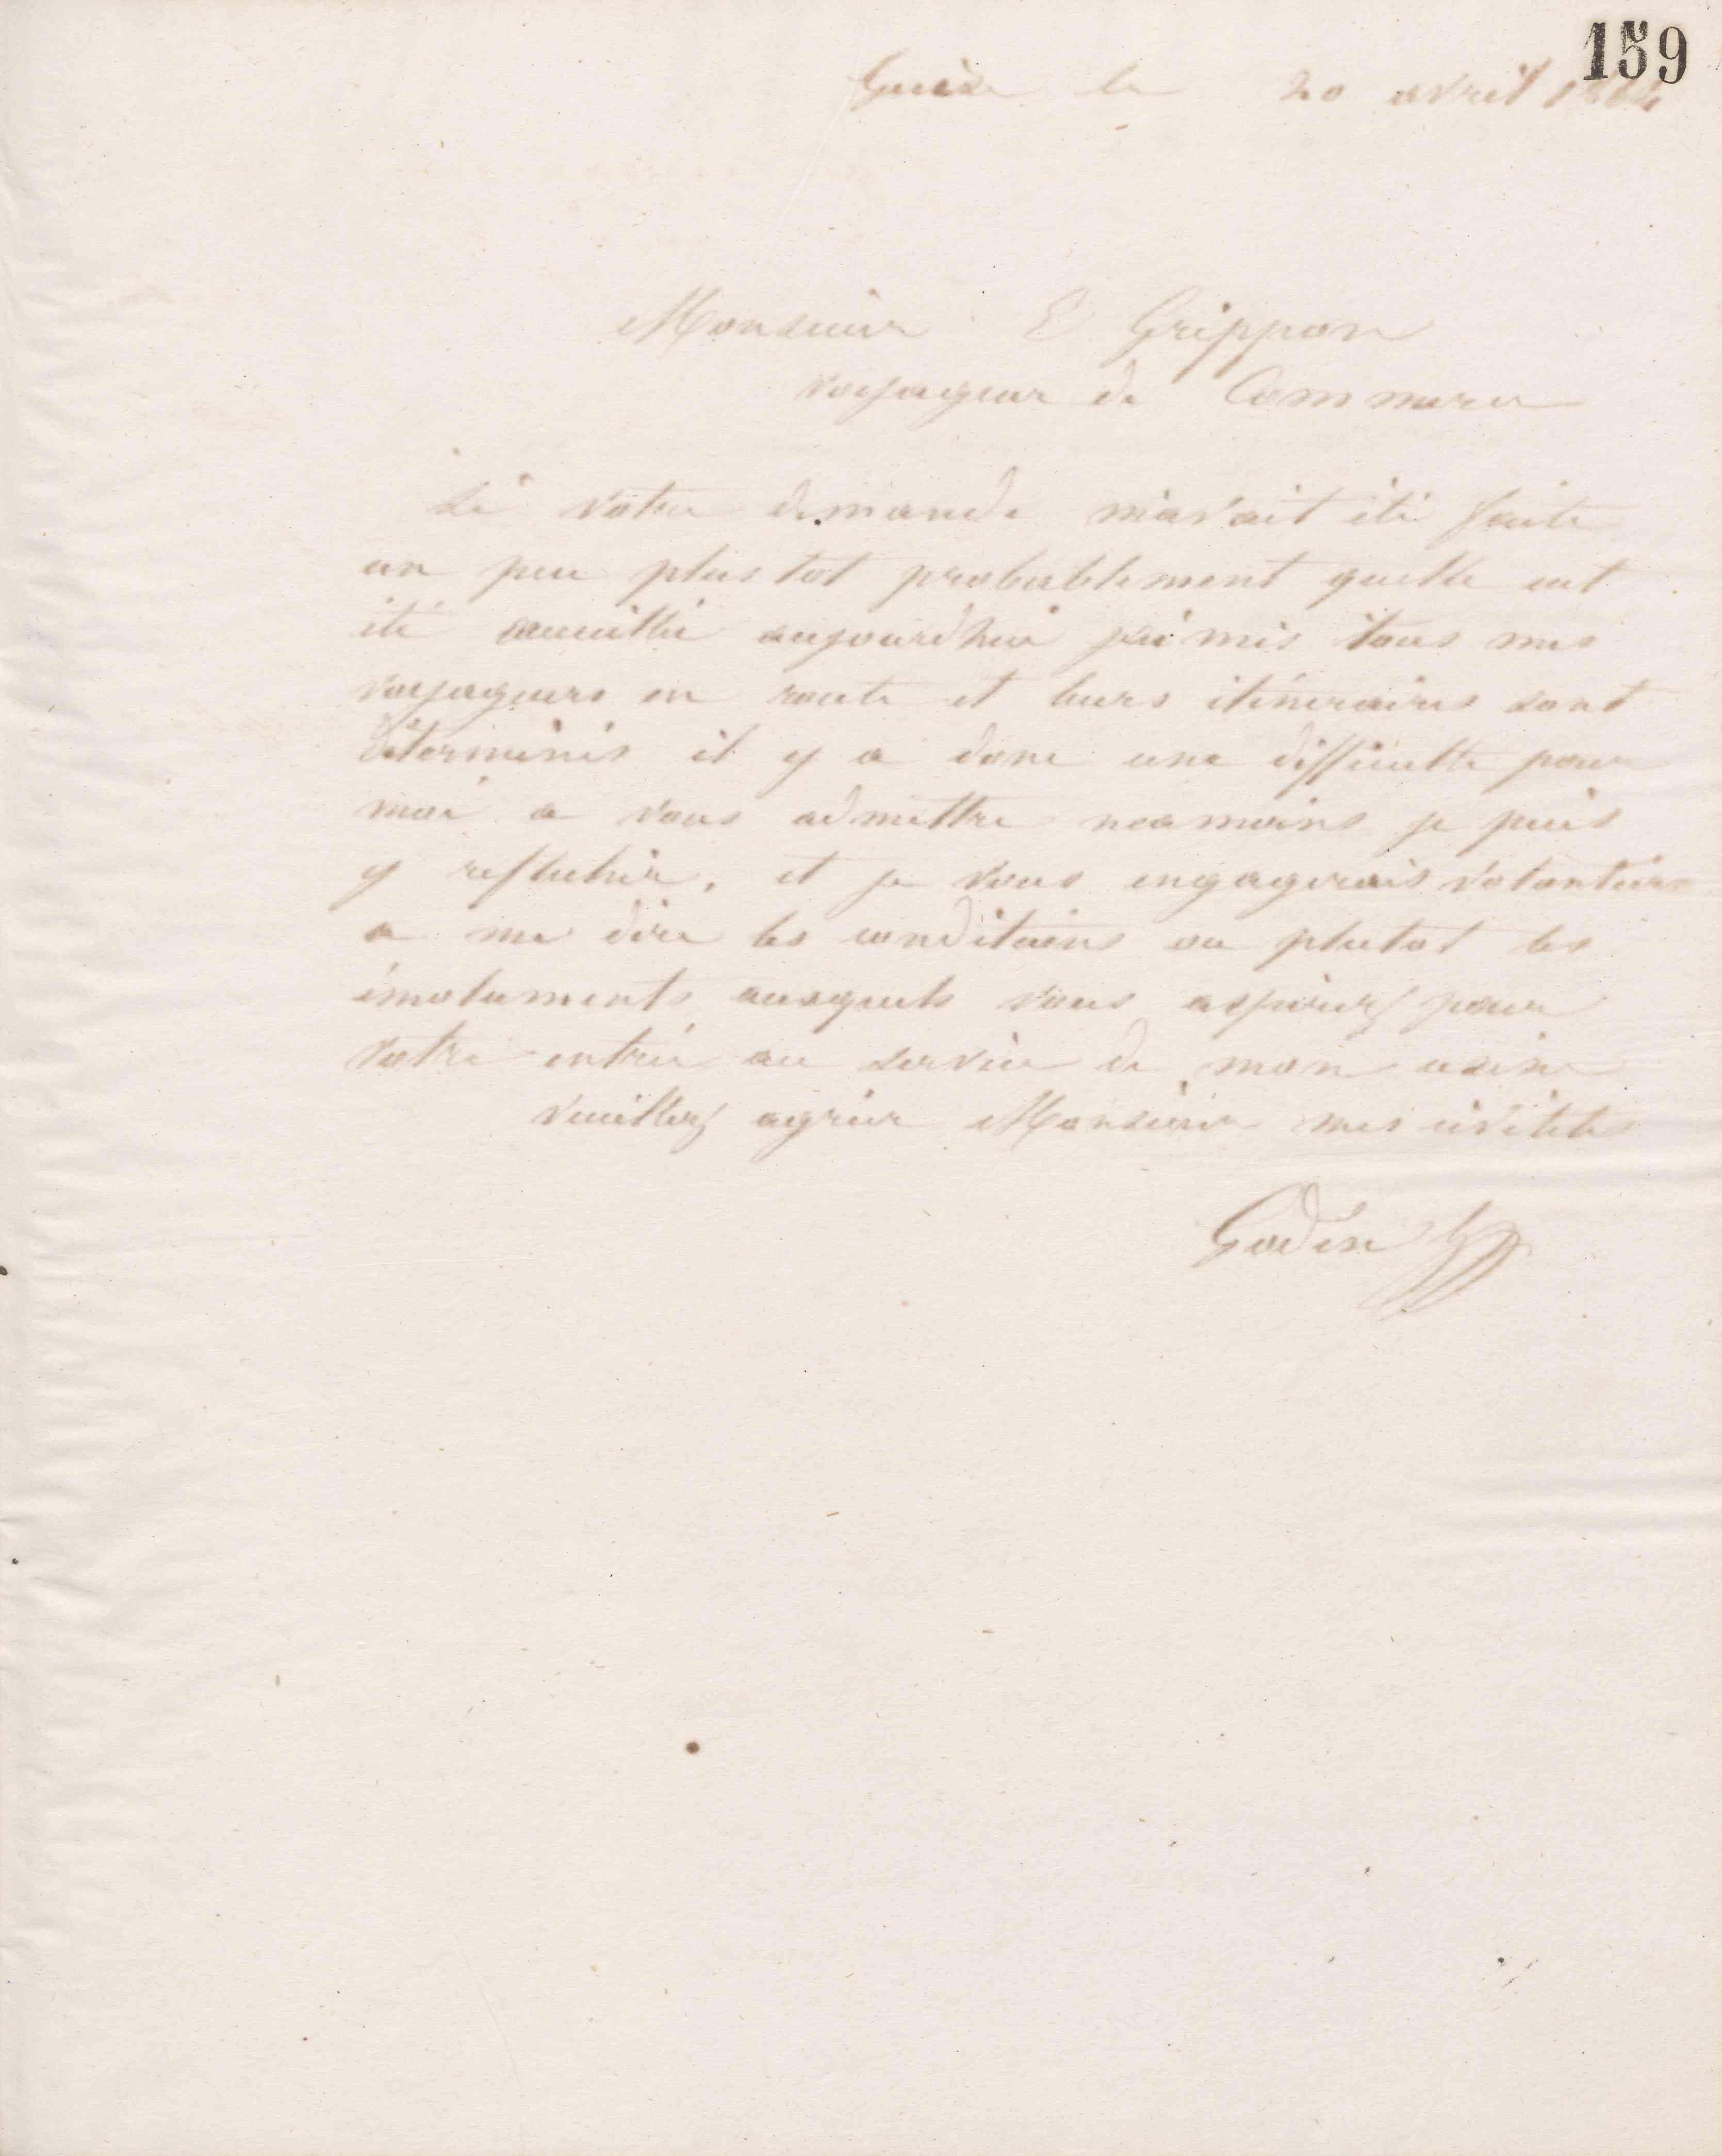 159
Guise le 20 avril 1864
Monsieur E Grippon
voyageur de Commerce
Si votre demande m'avait été faite
un peu plus tot probablement quelle eut
été accueillie aujourdhui j'ai mis tous mes
voyageurs en route et leurs itinéraires sont
déterminés il y a donc une difficulte pour
moi a vous admettre neamoins je puis
y reflechir, et je vous engagerais volontiers
a me dire les conditions ou plutot les
émoluments auxquels vous aspirez pour
votre entrée au service de mon usine
Veuillez agréer Monsieur mes civilités
Godin